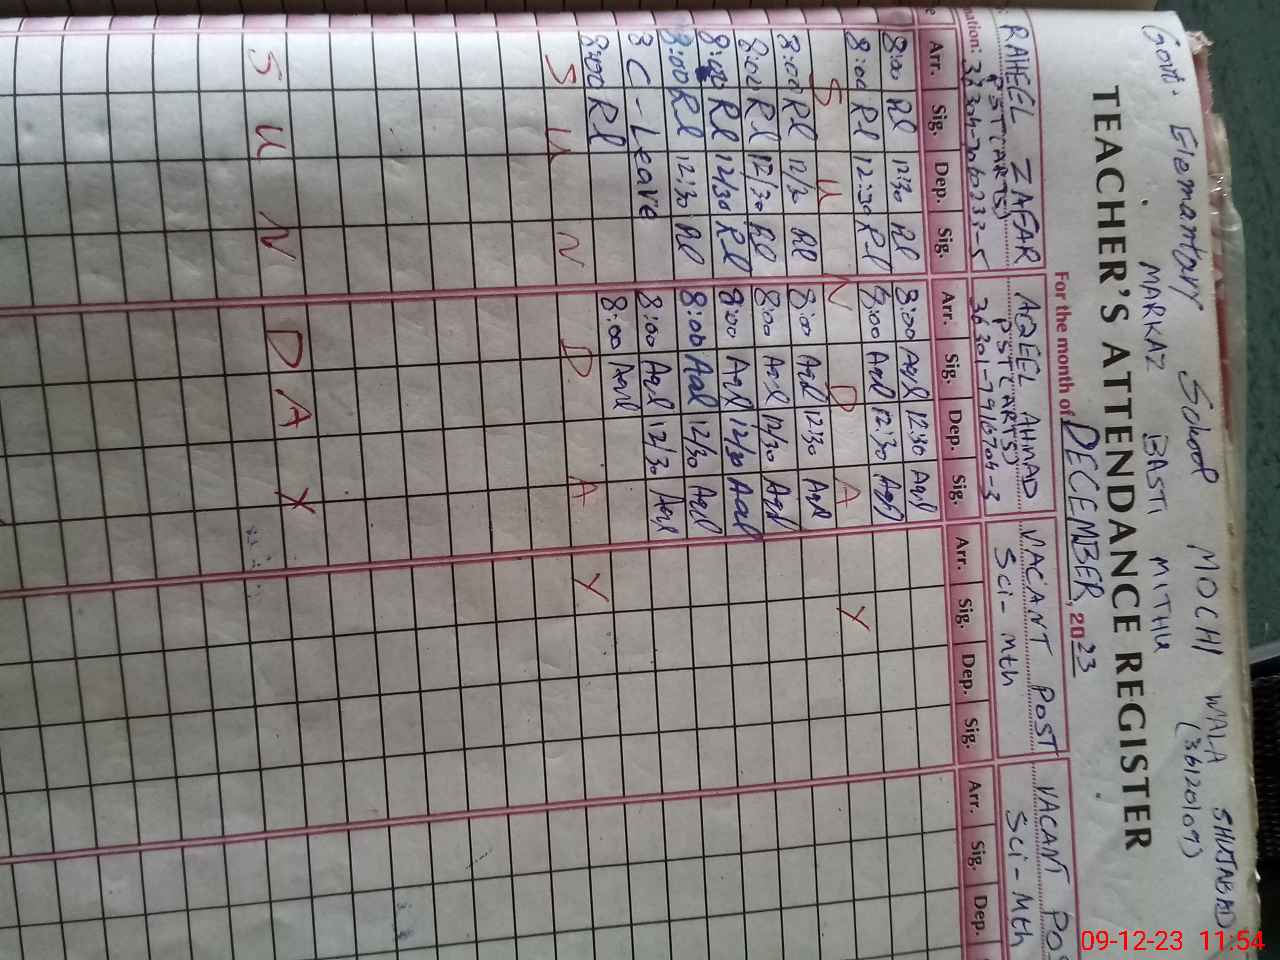 Govt. Elemantary School MOCHI WALA SHUJABAD
MARKAZ BASTI MITHU (36120109)
TEACHER'S ATTENDANCE REGISTER
For the month of DECEMBER, 2023
RAHEEL ZAFAR AQEEL AHMAD VACANT POST VACANT POS
PST (ARTS) PST (ARTS) Sci- Mth Sci- Mth
nation:
Arr. Sig. Dep. Sig. Arr. Sig. Dep. Sig. Arr. Sig. Dep. Sig. Arr. Sig. Dep.
8:00 Rl 12:30 Rl 8:00 Aqil 12:30 Aqil
8:00 Rl 12:30 Rl 8:00 Aqil 12:30 Aqil
S U N D A Y
8:00 Rl 12/30 Rl 8:00 Aqil 12:30 Aqil
8:00 Rl 12/30 Rl 8:00 Aqil 12/30 Aqil
8:00 Rl 12/30 Rl 8:00 Aqil 12/30 Aqil
8:00 Rl 12:30 Rl 8:00 Aqil 12/30 Aqil
3 C - Leave 8:00 Aqil 12/30 Aqil
8:00 Rl 8:00 Aqil
S U N D A Y
S U N D A Y
09-12-23 11:54